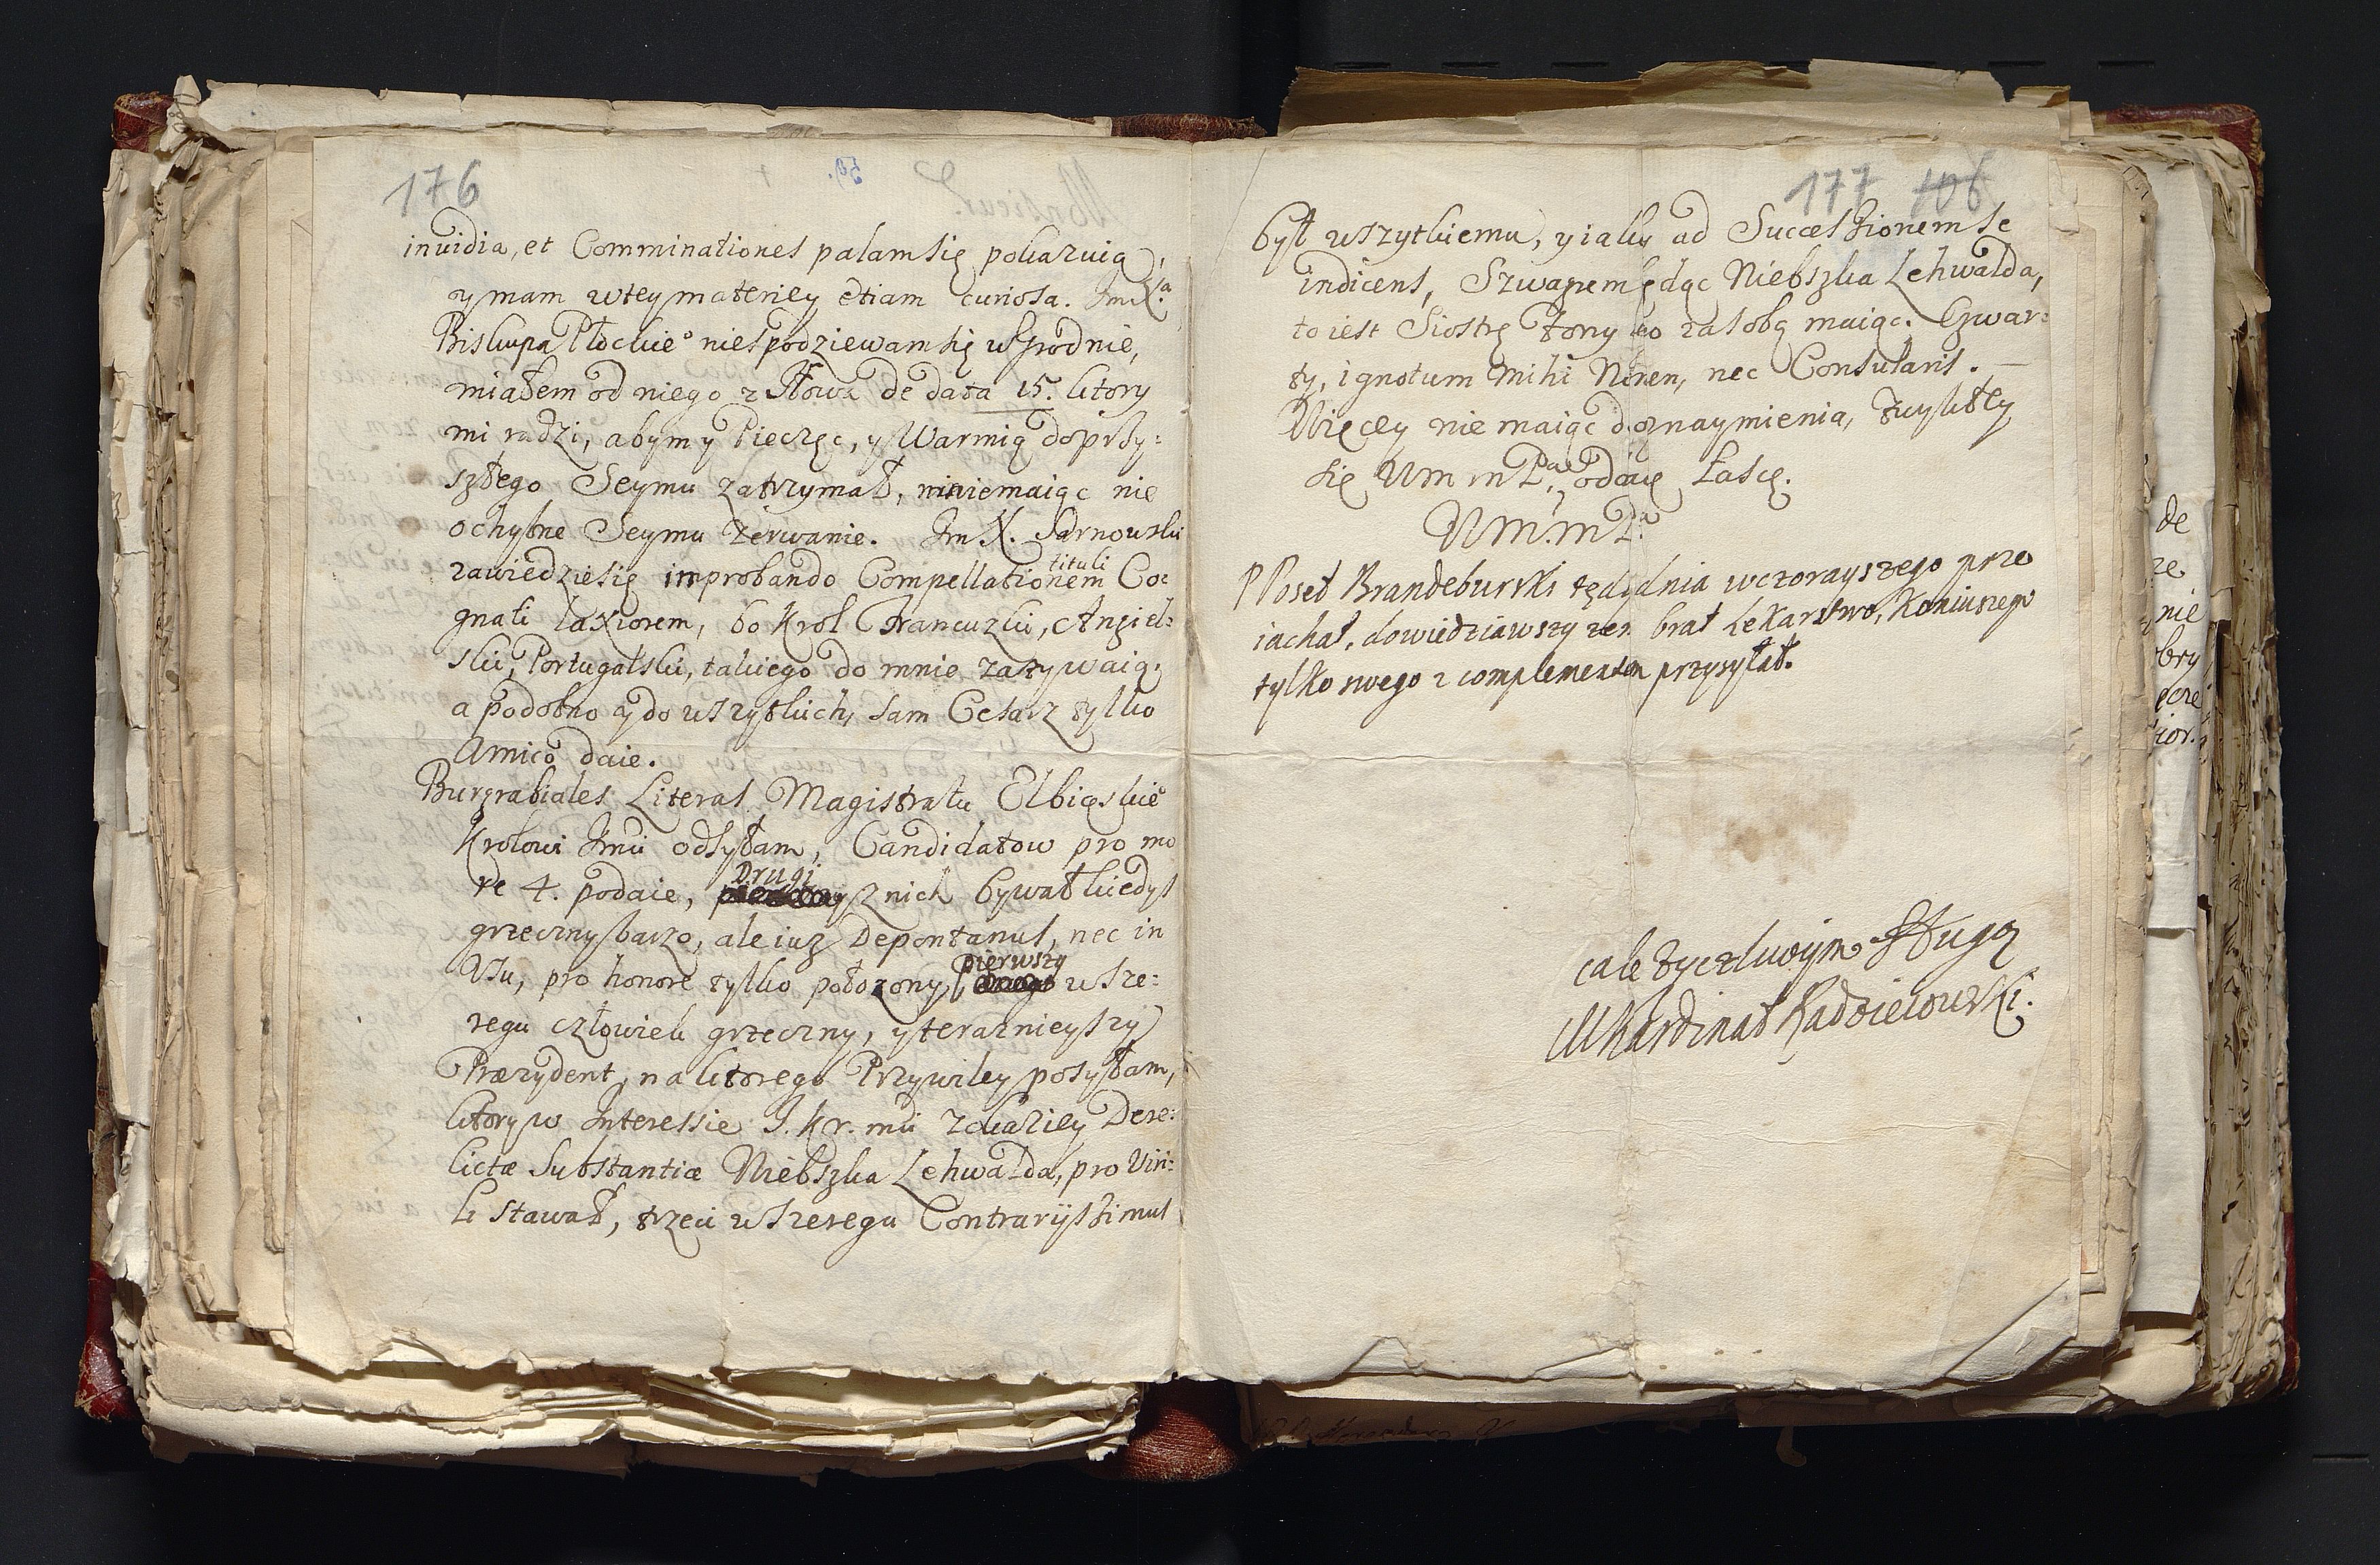 176
inuidia, et Comminationes palam się pokazuią,
y mam w tey materiey etiam curiosa. Jm X.ª
Biskupa Płockieº nie spodziewam się w Grodnie,
miałem od niego z Iłowa de data 15. ktory
mi radzi, abym y Pieczęc, y Warmią do przy:
szłego Seymu zatrzymał, nie maiąc nie
ochybne Seymu zerwanie. Jm X. Sarnowski
zawiedzie się improbando Compellationem tituli Co:
gnati laxiorem, bo Krol Francuzki, Angiel:
ski, Portugalski, takiego do mnie zażywaią,
a podobno y do wszytkich, sam Cesarz tylko
Amico daie.
Burgrabiales Literas Magistratu Elbiąskieº
Krolowi Jmu odsyłam, Candidatow pro mo
re 4. podaie, Drugi z nich bywał kiedys
grzeczny barzo, ale iuz Depontanus, nec in
Usu, pro honore tylko położony, pierwszy w sze:
regu człowiek grzeczny, y teraznieyszy
Præzydent, na ktorego Przywiley posyłam,
ktory w Interessie J. Kr. mći z okaziey Dere:
lictæ Substantiæ Niebszka Lehwalda, pro Viri:
li stawał, trzeci w szeregu Contrariissimus
177 106
był wszytkiemu, y iaky ad Successionem se
indicens, Szwagrem będąc Niebszka Lehwalda,
to iest Siostrę żony eo za sobą maiąc. Czwar:
ty, ignotum mihi Nomen, nec Consularis. –
Więcey nie maiąc do oznaymienia, zwykłey
się Wm m Pª, oddaię Łasce.
Wm. m Pª
P Poseł Brandeburski tędy dnia wczorayszego prze
iachał, dowiedziawszy zem brał Lekarstwo, Koniuszego
tylko swego z complementem przysyłał.
cale życzliwym sługą
M Kardinał Radzieiowski.
de
ze
nie
bry